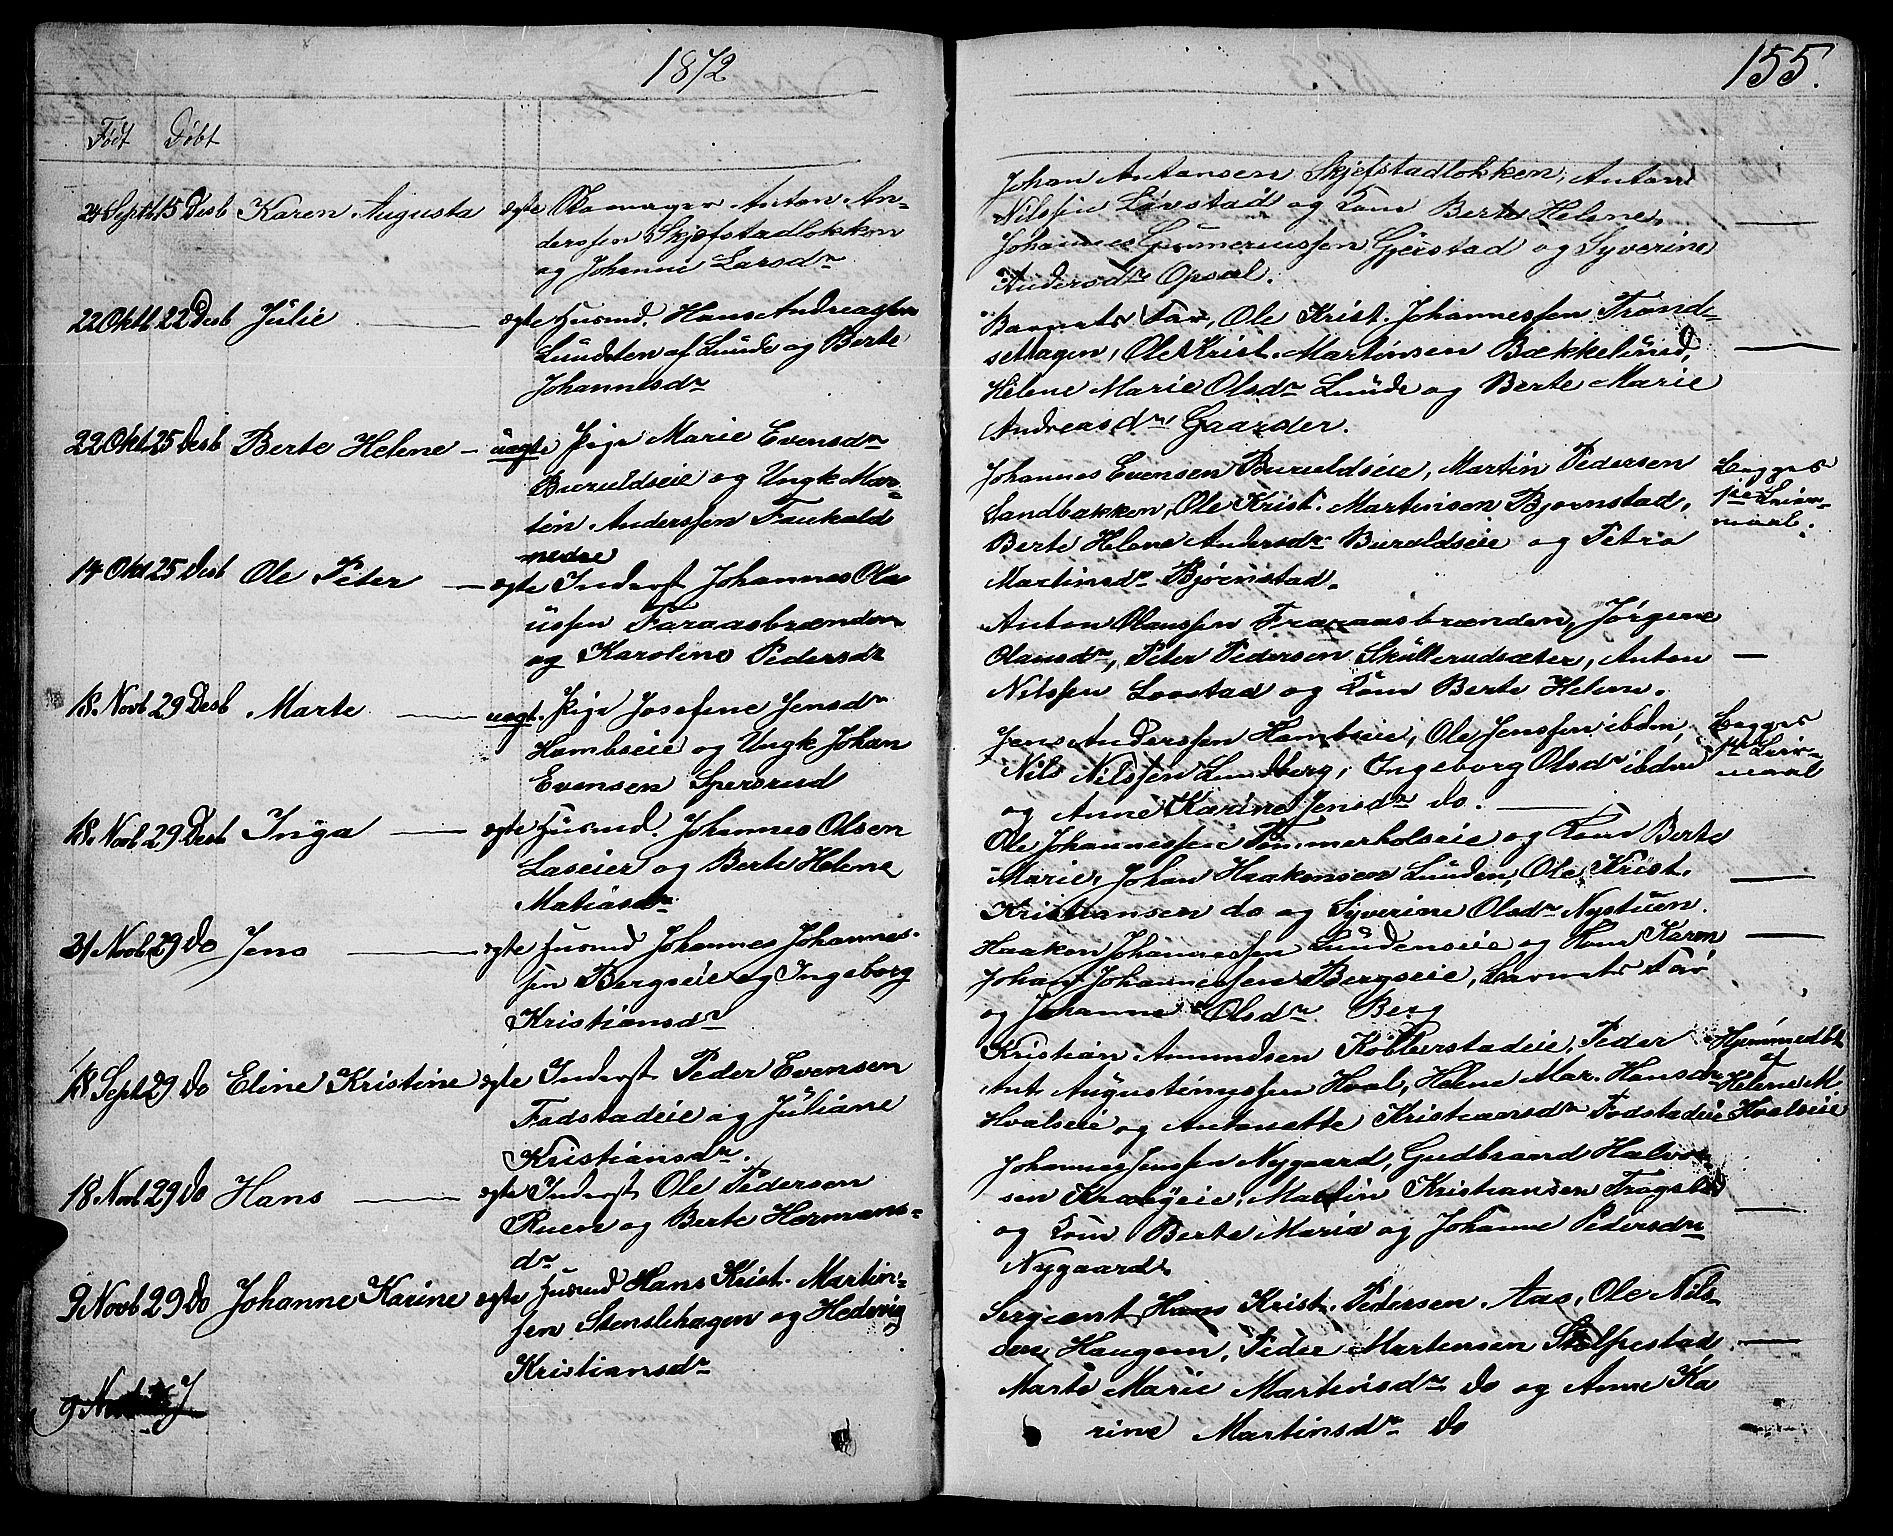 1872
Født Døbt
24 Sept 15 Desb Karen Augusta ægte Skomager Anton An-
derssen Skjefstadløkken
og Johanne Larsdr
22 Okt 22 Desb Julie ægte Husmd. Hans Andreassen
Lundsten af Lunde og Berte
Johannesdr
22 Okt. 25 Desb Berte Helene uægte Pige Marie Evensdr
Buruldseie og Ungk Mar-
tin Anderssen Faukald
nedre
14 Okt 25 Desb Ole Peter ægte Inderst Johannes Ola-
ussen Faraasbrænden
og Karoline Pedersdr
18 Novb 29 Desb Marte uægt. Pige Josefine Jensdr
Hambseie og Ungk Johan
Evensen Spersrud
18 Novb 29 Desb Inga ægte Husmd. Johannes Olsen
Laseier og Berte Helene
Matiasdr
21 Novb 29 do Jens ægte Husmd Johannes Johannes-
sen Bergseie og Ingeborg
Kristiansdr
18 Sept 29 do Eline Kristine ægte Inderst Peder Evensen
Fodstadeie og Juliane
Kristiansdr.
18 Novb 29 do Hans ægte Inderst Ole Pedersen
Ruen og Berte Hermans-
dr
9 Novb 29 do Johanne Karine ægte Husmd Hans Krist. Martin-
sen Stenslehagen og Hedevig
Kristiansdr
9 Novb J
155.
Johan Antonsen Skjefstadløkken, Anton
Nilssen Lovstad og Kone Berte Helene,
Johannes Gunerussen Gjeistad og Syverine
Andersdr Opsal.
Barnets Far, Ole Krist. Johannessen Trond-
sethagen, Ole Krist. Martinsen Bækkelund,
Helene Marie Olsdr Lunde og Berte Marie
Andreasdr Gaarder.
Johannes Evensen Buruldseie, Martin Pedersen Begges
Sandbakken, Ole Krist. Martinsen Bjørnstad, 1ste Leier-
Berte Helene Andersdr Buroldseie og Petra maal.
Martinsdr Bjørnstad.
Anton Olaussen Fraraasbrænden, Jørgine
Olausdr, Peter Pedersen Skullerudsæter, Anton
Nilssen Lovstad og Kone Berte Helene.
Jens Anderssen Hambseie, Ole Jenssen ibdm, Begges
Nils Nilssen Lundberg, Ingeborg Olsdr ibdm 1ste Leier-
og Anne Karine Jensdr do. maal
Ole Johannessen Tømmerholseie og Kone Berte
Marie, Johan Haakensen Lunden, Ole Krist.
Kristiansen do og Syverine Olsdr Nystuen.
Haaken Johannessen Lundenseie og Kone Karen
Johan Johannessen Bergseie, Barnets Far
og Johanne Olsdr Berg
Kristian Amundsen Kobberstadeie, Peder Hjemmedbt
Ant. Augustinussen Hval, Helene Mar. Hansdr af Helene M
Hvalseie og Antonette Kristiansdr Fodstadeie Hvalseie
Johannes Jenssen Nygaard, Gudbrand Halvor-
sen Kraby eie, Martin Kristiansen Trogstad
og Kone Berte Maria og Johanne Pedersdr
Nygaard.
Sergeant Hans Krist. Pedersen Aas, Ole Nils-
sen Haugen, Peder Martensen Stolpestad
Marte Marie Martinsdr do og Anne Ka
rine Martinsdr do